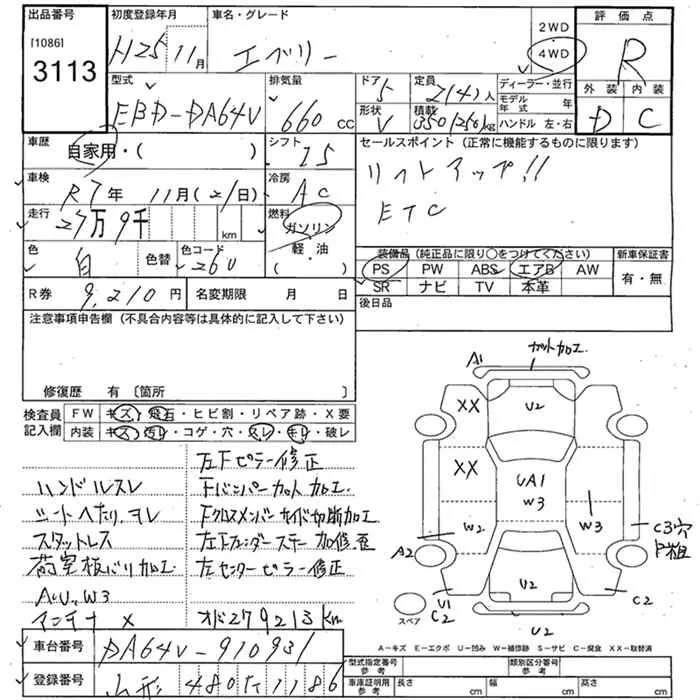 出品番号
[1086]
3113
初度登録年月
H25 11月
車名・グレード
エブリー
2WD
4WD
評価点
R
外装 内装
D C
型式
EBD-DA64V
排気量
660 cc
ドア 5
形状 V
定員 2(4)人
積載 350(250)kg
ディーラー・並行
モデル年式 年
ハンドル 左・右
車歴 自家用・( )
シフト I5
セールスポイント (正常に機能するものに限ります)
リフトアップ!!
ETC
車検 R7年 11月(21日)
冷房 AC
走行 27万9千 km
燃料 ガソリン・軽・油 ( )
色 白 色替 色コード 26U
装備品 (純正品に限り○をつけてください)
PS PW ABS エアB AW
SR ナビ TV 本革
新車保証書
有・無
R券 9,210円 名変期限 月 日
後日品
注意事項申告欄 (不具合内容等は具体的に記入して下さい)
修復歴 有 〔箇所 〕
検査員記入欄
FW キズ・飛石・ヒビ割・リペア跡・X要
内装 キズ・汚れ・コゲ・穴・スレ・キレ・破レ
左Fピラー修正
ハンドルスレ Fバンパーカット加工.
シートへたり.ヨレ Fクロスメンバーサイド切断加工
スタットレス 左Fフェンダーステー加修歪
荷室板バリ加工 左センターピラー修正
A(U.W3
インテナ X オド279213km
車台番号 DA64V-910931
登録番号 山形 480 た 1186
A1 カット加工.
XX U2
XX UA1 W3
W2 W3
A2 C3穴
P粗
U2
U1 C2 C2
U2
スペア
A-キズ E-エクボ U-凹み W-補修跡 S-サビ C-腐食 XX-取替済
型式指定番号 参考 類別区分番号 参考
車庫証明用 参考 長さ cm 幅 cm 高さ cm